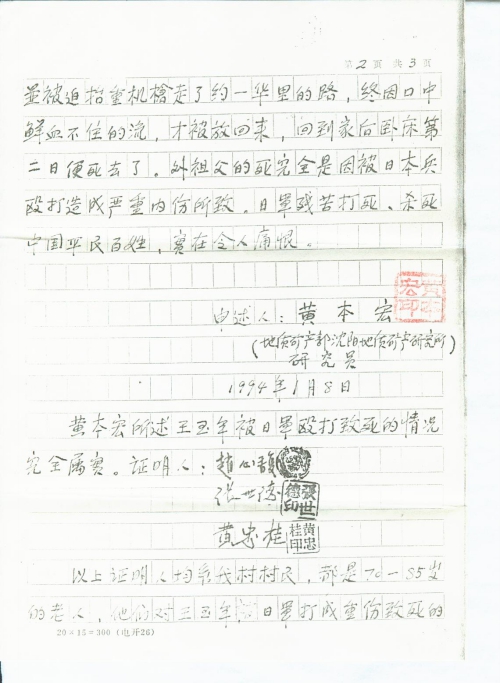 第 2 页 共 3 页
並被迫抬重机槍走了约一华里的路，终因口中
鲜血不住的流，才被放回来，回到家后卧床第
二日便死去了。外祖父的死完全是因被日本兵
殴打造成严重内伤所致。日軍残苦打死、杀死
中国平民百姓，实在令人痛恨。
申述人：黄本宏
黄本宏印
(地质矿产部沈阳地质矿产研究所)
研究员
1994年1月8日
黄本宏所述王玉年被日軍殴打致死的情况
完全属实。证明人：趙心馥
张世德
張世德印
黄忠桂
黄忠桂印
以上证明人均系我村村民，都是70－85岁
的老人，他们对王玉年被日軍打成重伤致死的
20×15=300 (电开26)